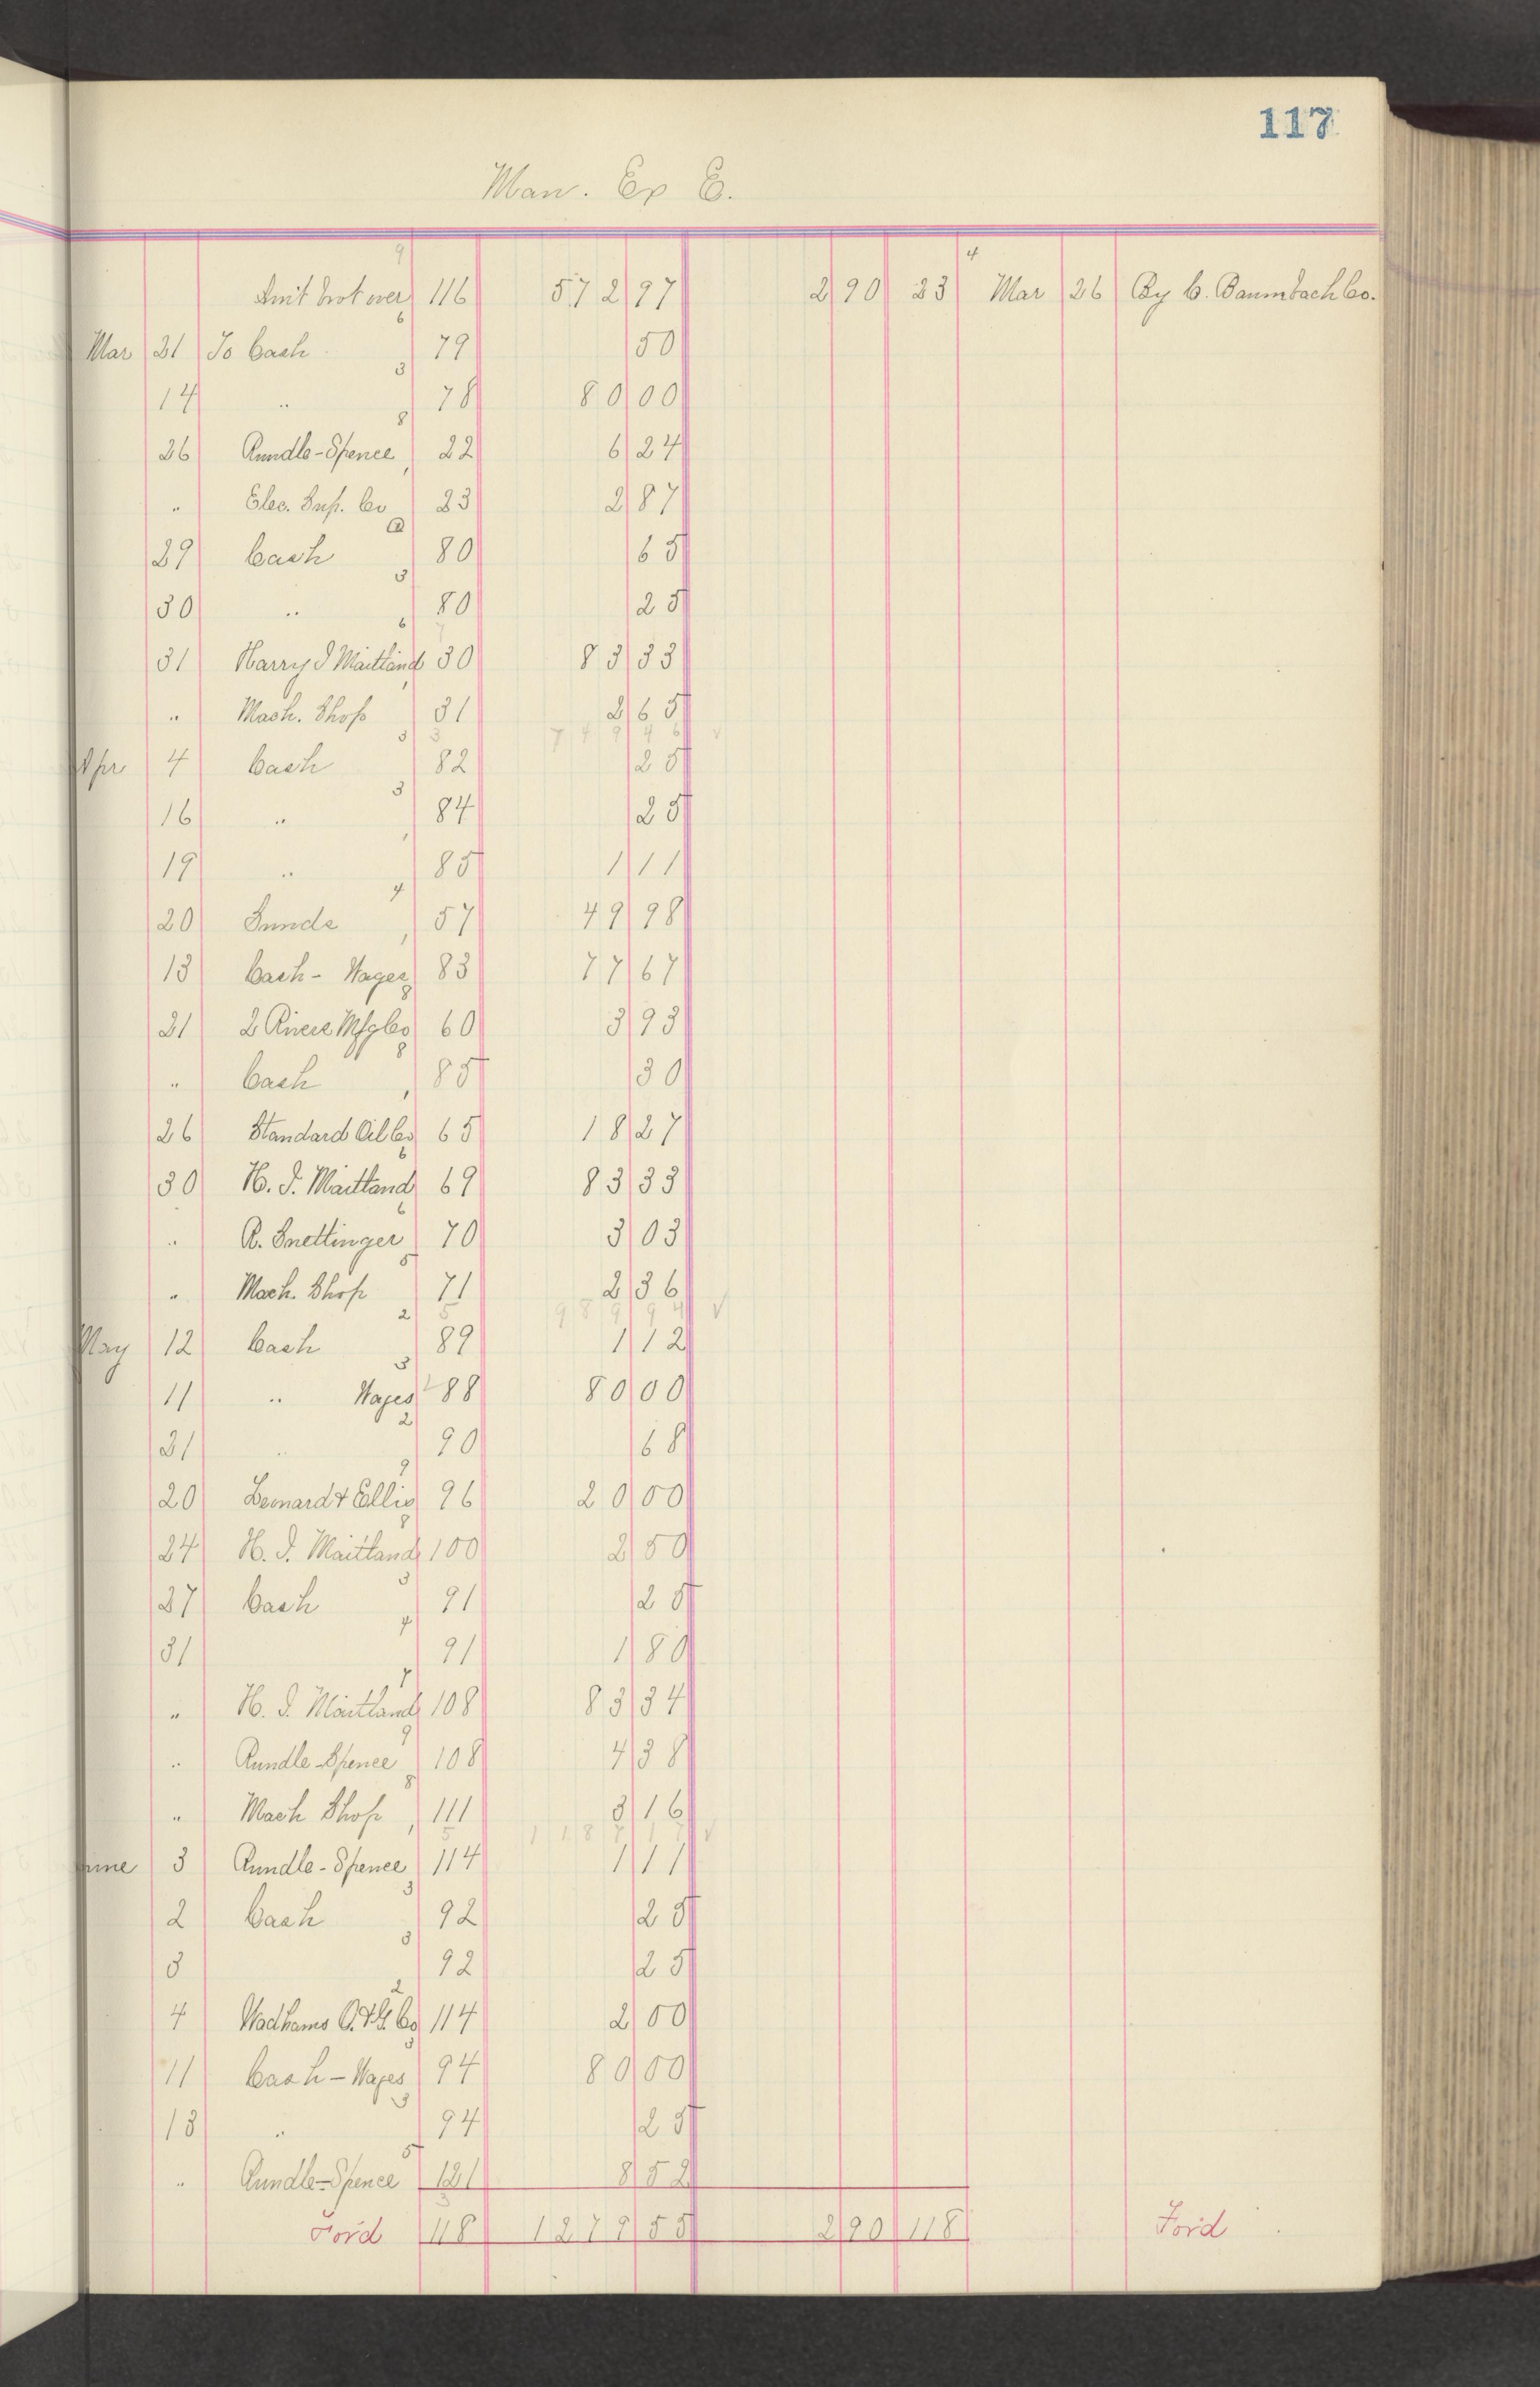 117
Man. Ex E.
Amt brot over 116 572 97 2 90 23 Mar 26 By C. Baumbach Co.
Mar 21 To Cash 79 50
14 " 78 80 00
26 Rundle-Spence 22 6 24
" Elec. Sup. Co 23 2 87
29 Cash 80 65
30 " 80 25
31 Harry J Maitland 30 83 33
" Mach. Shop 31 2 65
749 46 ✓
Apr 4 Cash 82 25
16 " 84 25
19 " 85 1 11
20 Sunds 57 49 98
13 Cash - Wages 83 77 67
21 2 Rivers Mfg Co 60 3 93
" Cash 85 30
26 Standard Oil Co 65 18 27
30 H. J. Maitland 69 83 33
" R. Snettinger 70 3 03
" Mach. Shop 71 2 36
989 94 ✓
May 12 Cash 89 1 12
11 " Wages 88 80 00
21 " 90 68
20 Leonard & Ellis 96 20 00
24 H. J. Maitland 100 2 50
27 Cash 91 25
31 91 1 80
" H. J. Maitland 108 83 34
" Rundle-Spence 108 4 38
" Mach Shop 111 3 16
1187 17 ✓
June 3 Rundle-Spence 114 1 11
2 Cash 92 25
3 92 25
4 Wadhams O. & G. Co 114 2 00
11 Cash - Wages 94 80 00
13 " 94 25
" Rundle-Spence 121 8 52
Ford 118 1279 55 2 90 118 Ford